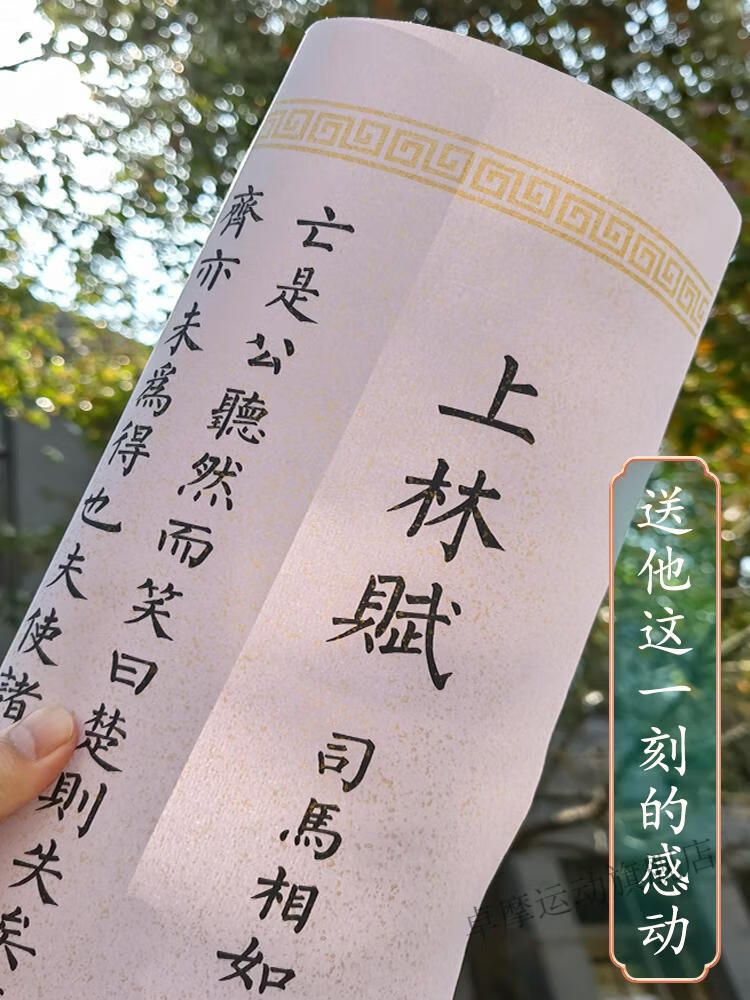 上林賦
司馬相如
亡是公聽然而笑曰楚則失矣
齊亦未為得也夫使諸
送他这一刻的感动
卓摩运动旗店